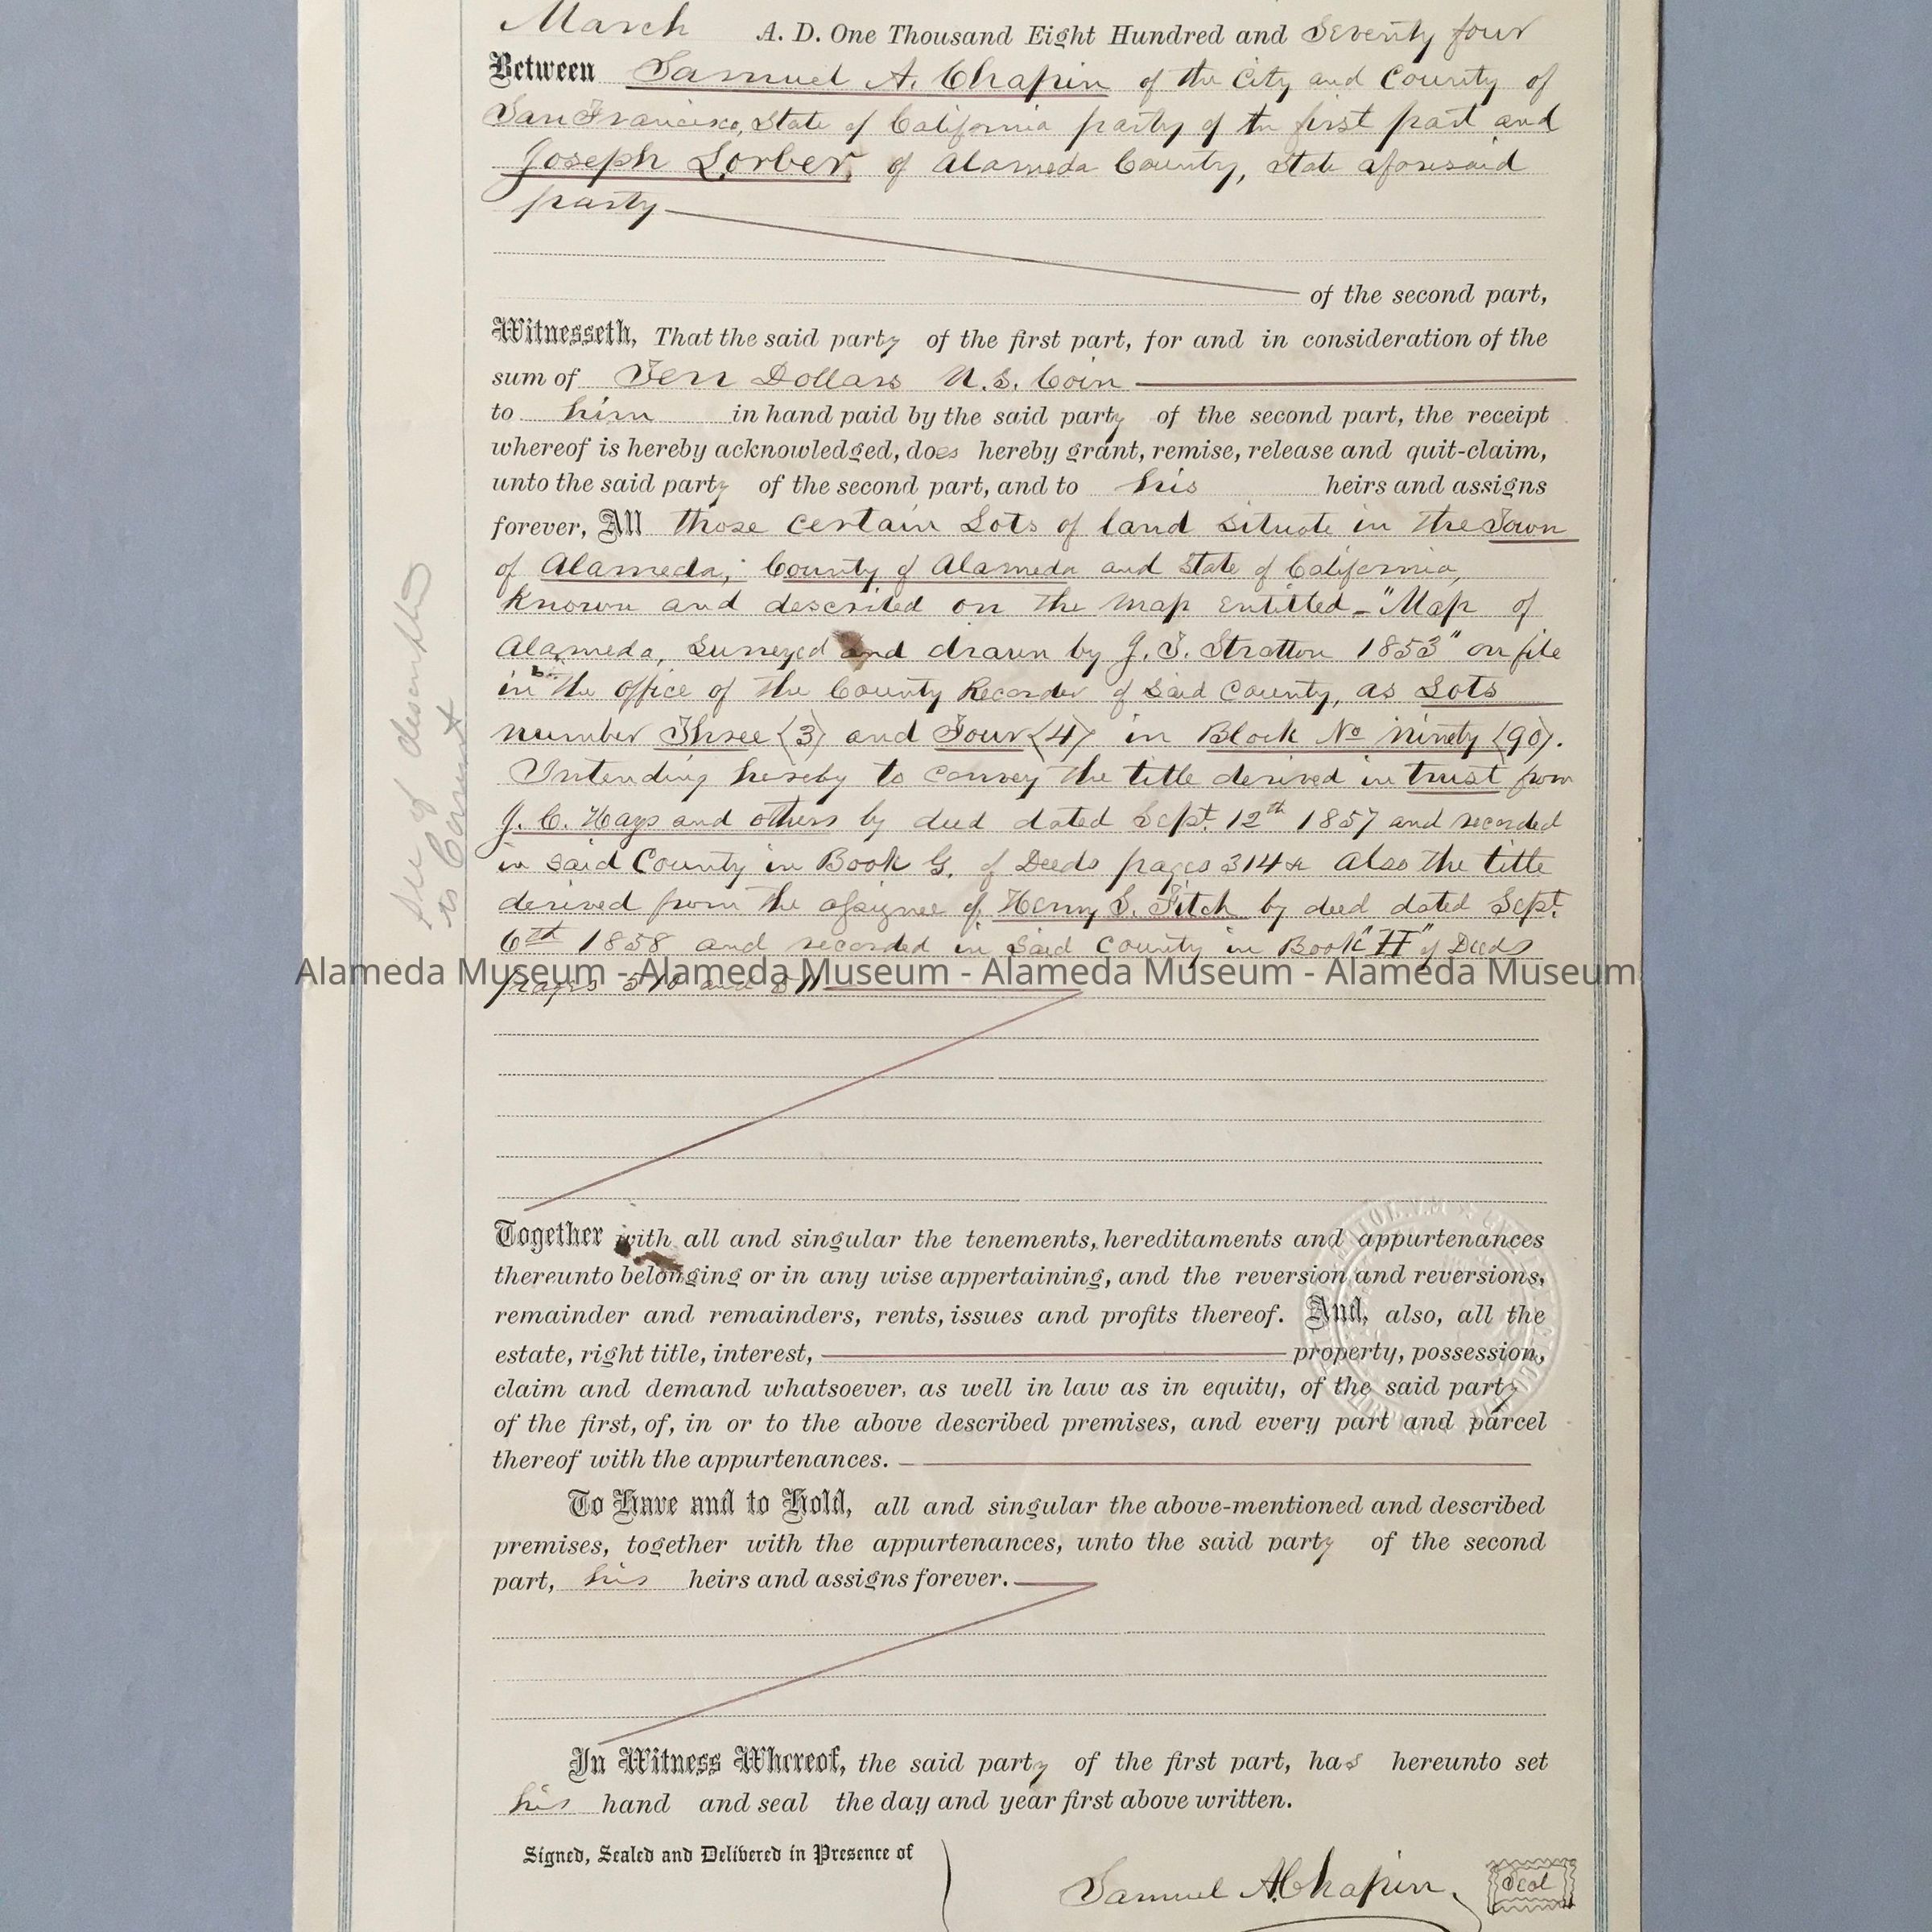 March A. D. One Thousand Eight Hundred and Seventy four
Between Samuel A. Chapin of the City and County of
San Francisco, State of California party of the first part and
Joseph Lorber, of Alameda County, State aforesaid
party
of the second part,
Witnesseth, That the said party of the first part, for and in consideration of the
sum of Ten Dollars U.S. Coin
to him in hand paid by the said party of the second part, the receipt
whereof is hereby acknowledged, does hereby grant, remise, release and quit-claim,
unto the said party of the second part, and to his heirs and assigns
forever, All those certain Lots of land situate in the Town
of Alameda, County of Alameda and State of California,
Known and described on the map entitled "Map of
Alameda, Surveyed and drawn by J. T. Stratton 1853" on file
in the office of the County Recorder of Said County, as Lots
number Three (3) and Four (4) in Block No ninety (90).
Intending hereby to convey the title derived in trust from
J. C. Hays and others by deed dated Sept. 12th 1857 and recorded
in said County in Book G. of Deeds pages 314 & also the title
derived from the assignee of Henry S. Fitch by deed dated Sept.
6th 1858 and recorded in Said County in Book "H" of Deeds
Alameda Museum - Alameda Museum - Alameda Museum - Alameda Museum
pages 510 and 511
Together with all and singular the tenements, hereditaments and appurtenances
thereunto belonging or in any wise appertaining, and the reversion and reversions,
remainder and remainders, rents, issues and profits thereof. And, also, all the
estate, right title, interest, property, possession,
claim and demand whatsoever, as well in law as in equity, of the said party
of the first, of, in or to the above described premises, and every part and parcel
thereof with the appurtenances.
To Have and to Hold, all and singular the above-mentioned and described
premises, together with the appurtenances, unto the said party of the second
part, his heirs and assigns forever.
In Witness Whereof, the said party of the first part, has hereunto set
his hand and seal the day and year first above written.
Signed, Sealed and Delivered in Presence of
Samuel A. Chapin Seal